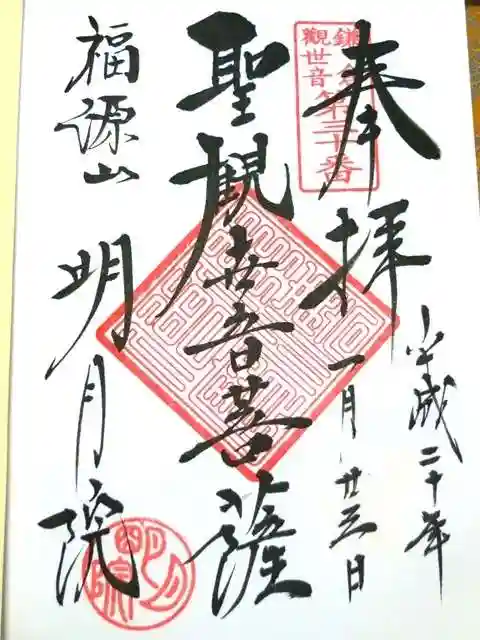 奉拝
鎌倉
觀世音
第三十番
平成二十年
一月廿三日
聖観世音菩薩
福源山
明月院
明月院